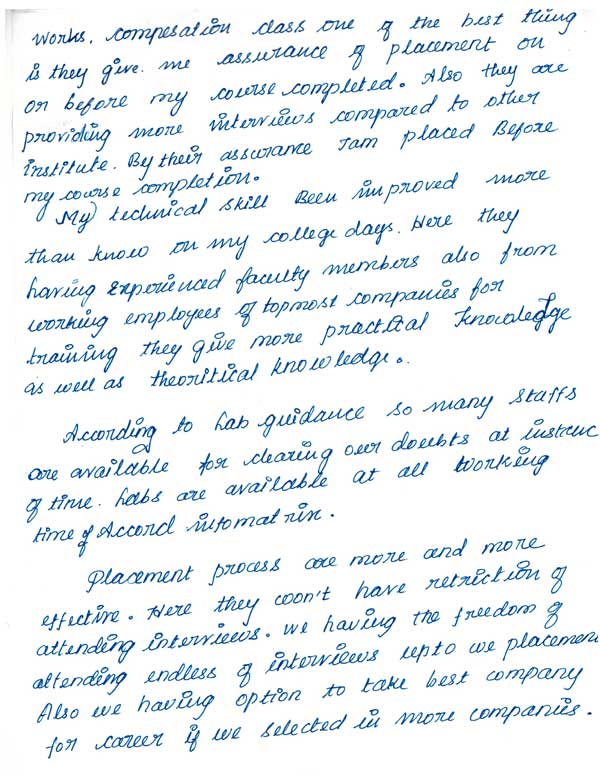 works. compesation class one of the best thing
is they give me assurance of placement on
or before my course completed. Also they are
providing more interviews compared to other
institute. By their assurance I am placed Before
my course completion.
My technical skill Been improved more
than know on my college days. Here they
having experienced faculty members also from
working employees of topmost companies for
training they give more practical knowledge
as well as theoritical knowledge.
According to Lab guidance so many staffs
are available for clearing our doubts at instruc
of time. Labs are available at all working
time of Accord infomatrix.
Placement process are more and more
effective. Here they won't have retriction of
attending interviews. we having the freedom of
attending endless of interviews upto we placement
Also we having option to take best company
for career if we selected in more companies.